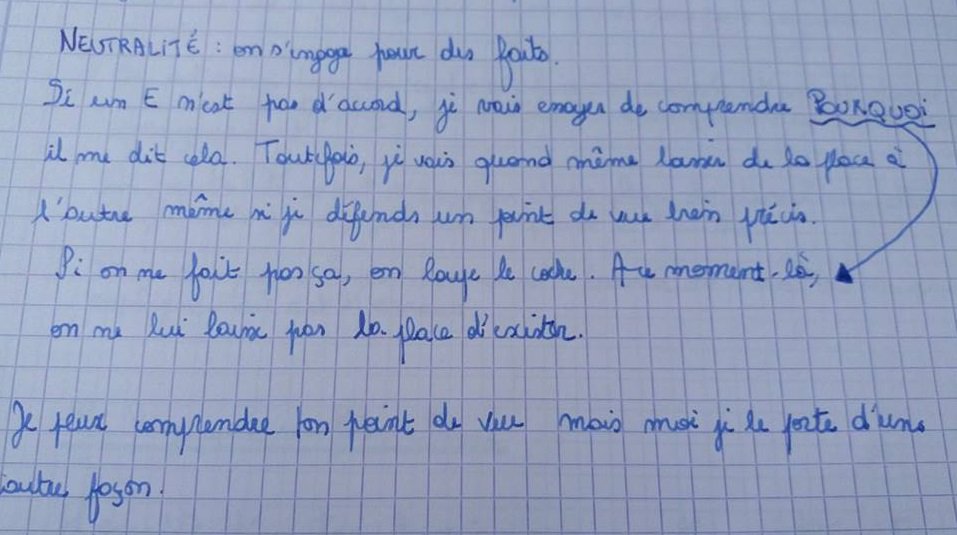 NEUTRALITÉ : on s'engage pour des faits.
Si un E n'est pas d'accord, je vais essayer de comprendre POURQUOI
il me dit cela. Toutefois, je vais quand même laisser de la place à
l'autre même si je défends un point de vue bien précis.
Si on ne fait pas ça, on loupe le coche. À ce moment-là,
on ne lui laisse pas la place d'exister.
Je peux comprendre ton point de vue mais moi je le porte d'une
autre façon.